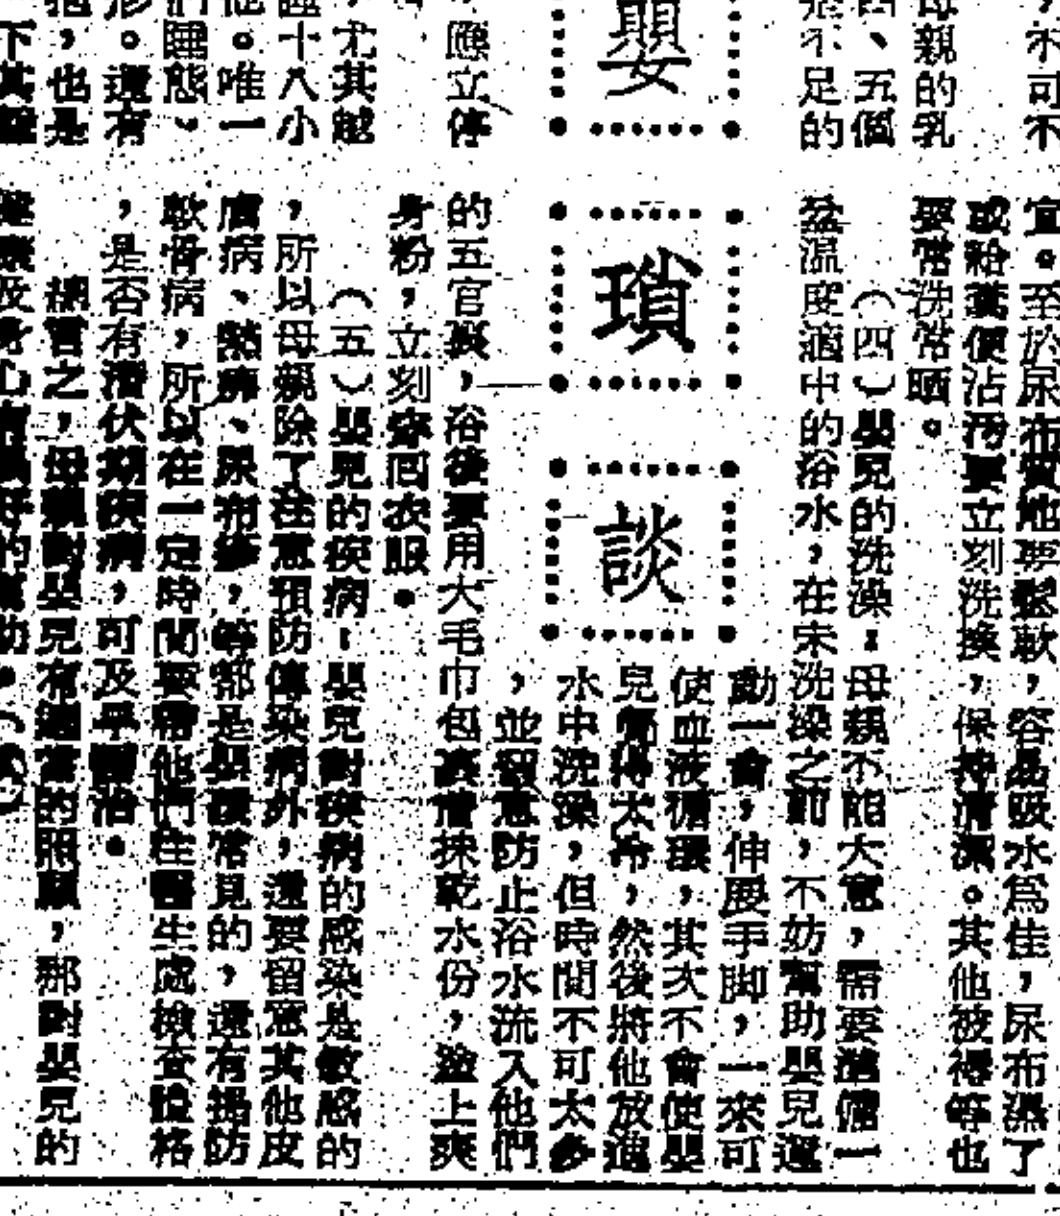 ，不可不
母親的乳
四、五個
不足的
嬰
，應立停
，尤其越
十八小
他。唯一
們睡態、
形。還有
，也是
下其
宜。至於尿布質地要鬆軟，容易吸水爲佳，尿布濕了
或給糞便沾汚要立刻洗換，保持清潔。其他被褥等也
要常洗常晒。
（四）嬰兒的洗澡：母親不能大意，需要準備一
盆溫度適中的浴水，在未洗澡之前，不妨幫助嬰兒運
動一會，伸腰手脚，一來可
使血液循環，其次不會使嬰
兒覺得太冷，然後將他放進
水中洗澡，但時間不可太多
，並留意防止浴水流入他們
瑣
談
的五官裏，浴後要用大毛巾包裹揩抹乾水份，塗上爽
身粉，立刻穿回衣服。
（五）嬰兒的疾病：嬰兒對疾病的感染是敏感的
，所以母親除了注意預防傳染病外，還要留意其他皮
膚病、熱痱、尿布疹，等都是嬰孩常見的，還有提防
軟骨病，所以在一定時間要帶他們往醫生處檢查體格
，是否有潛伏期疾病，可及早醫治。
總言之，母親對嬰兒有適當的照顧，那對嬰兒的
健康及身心有良好的幫助。